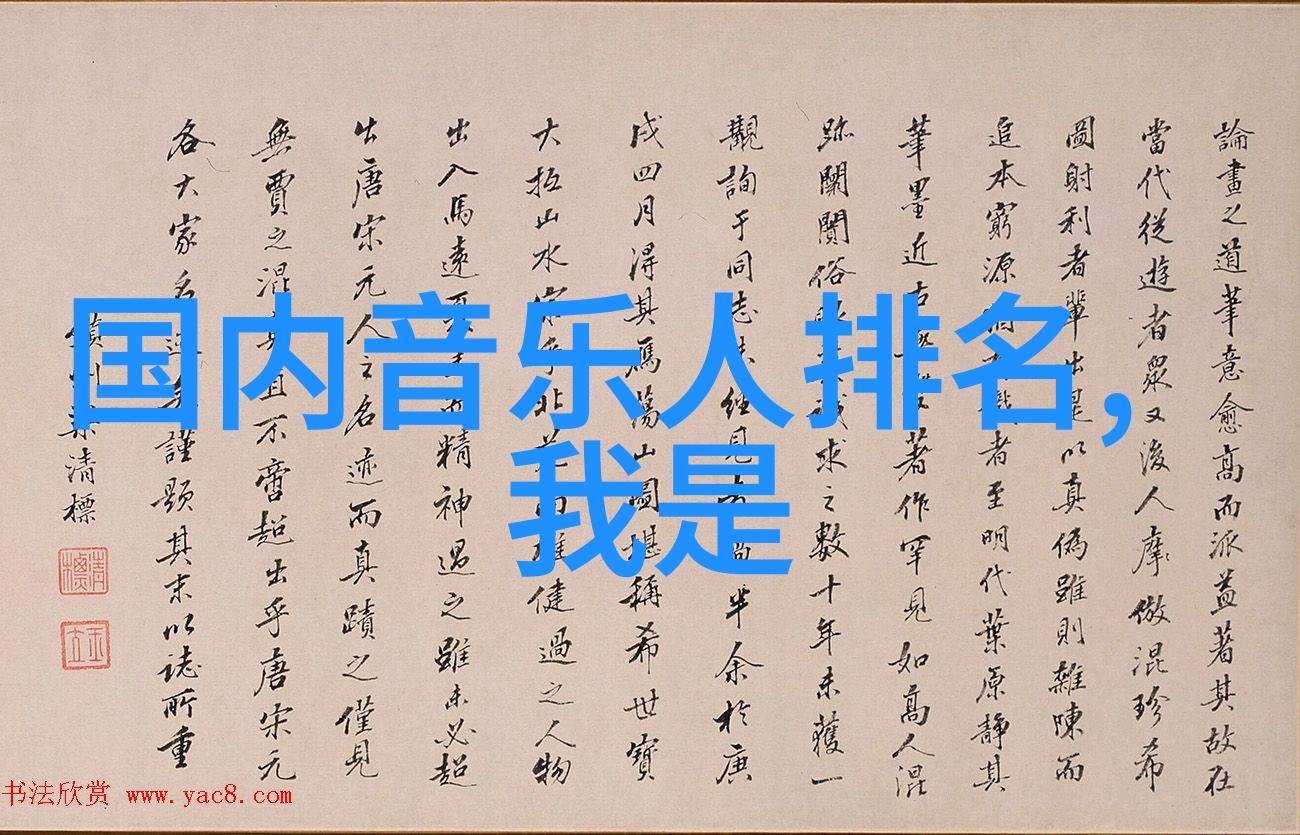 論畫之道筆意愈高而派益著其故在
當代從遊者眾又後人摩倣混珍希
圖射利者輩出是以真僞雖則雜陳而
追本窮源者至明代葉原靜其
筆墨近古著作罕見如高人混
跡闤闠俗求之數十年未獲一
觀詢于同志未經見半余於庚
戌四月得其雁蕩山圖堪稱希世寶
大抵山水雄健過之人物
出入馬遠精神過之雖未必超
出唐宋元人之名迹而真蹟之僅見
無賈之混且不啻超出乎唐宋元
各大家名謹題其末以誌所重
清標
清標
国内音乐人排名,
我是
书法欣赏 www.yac8.com